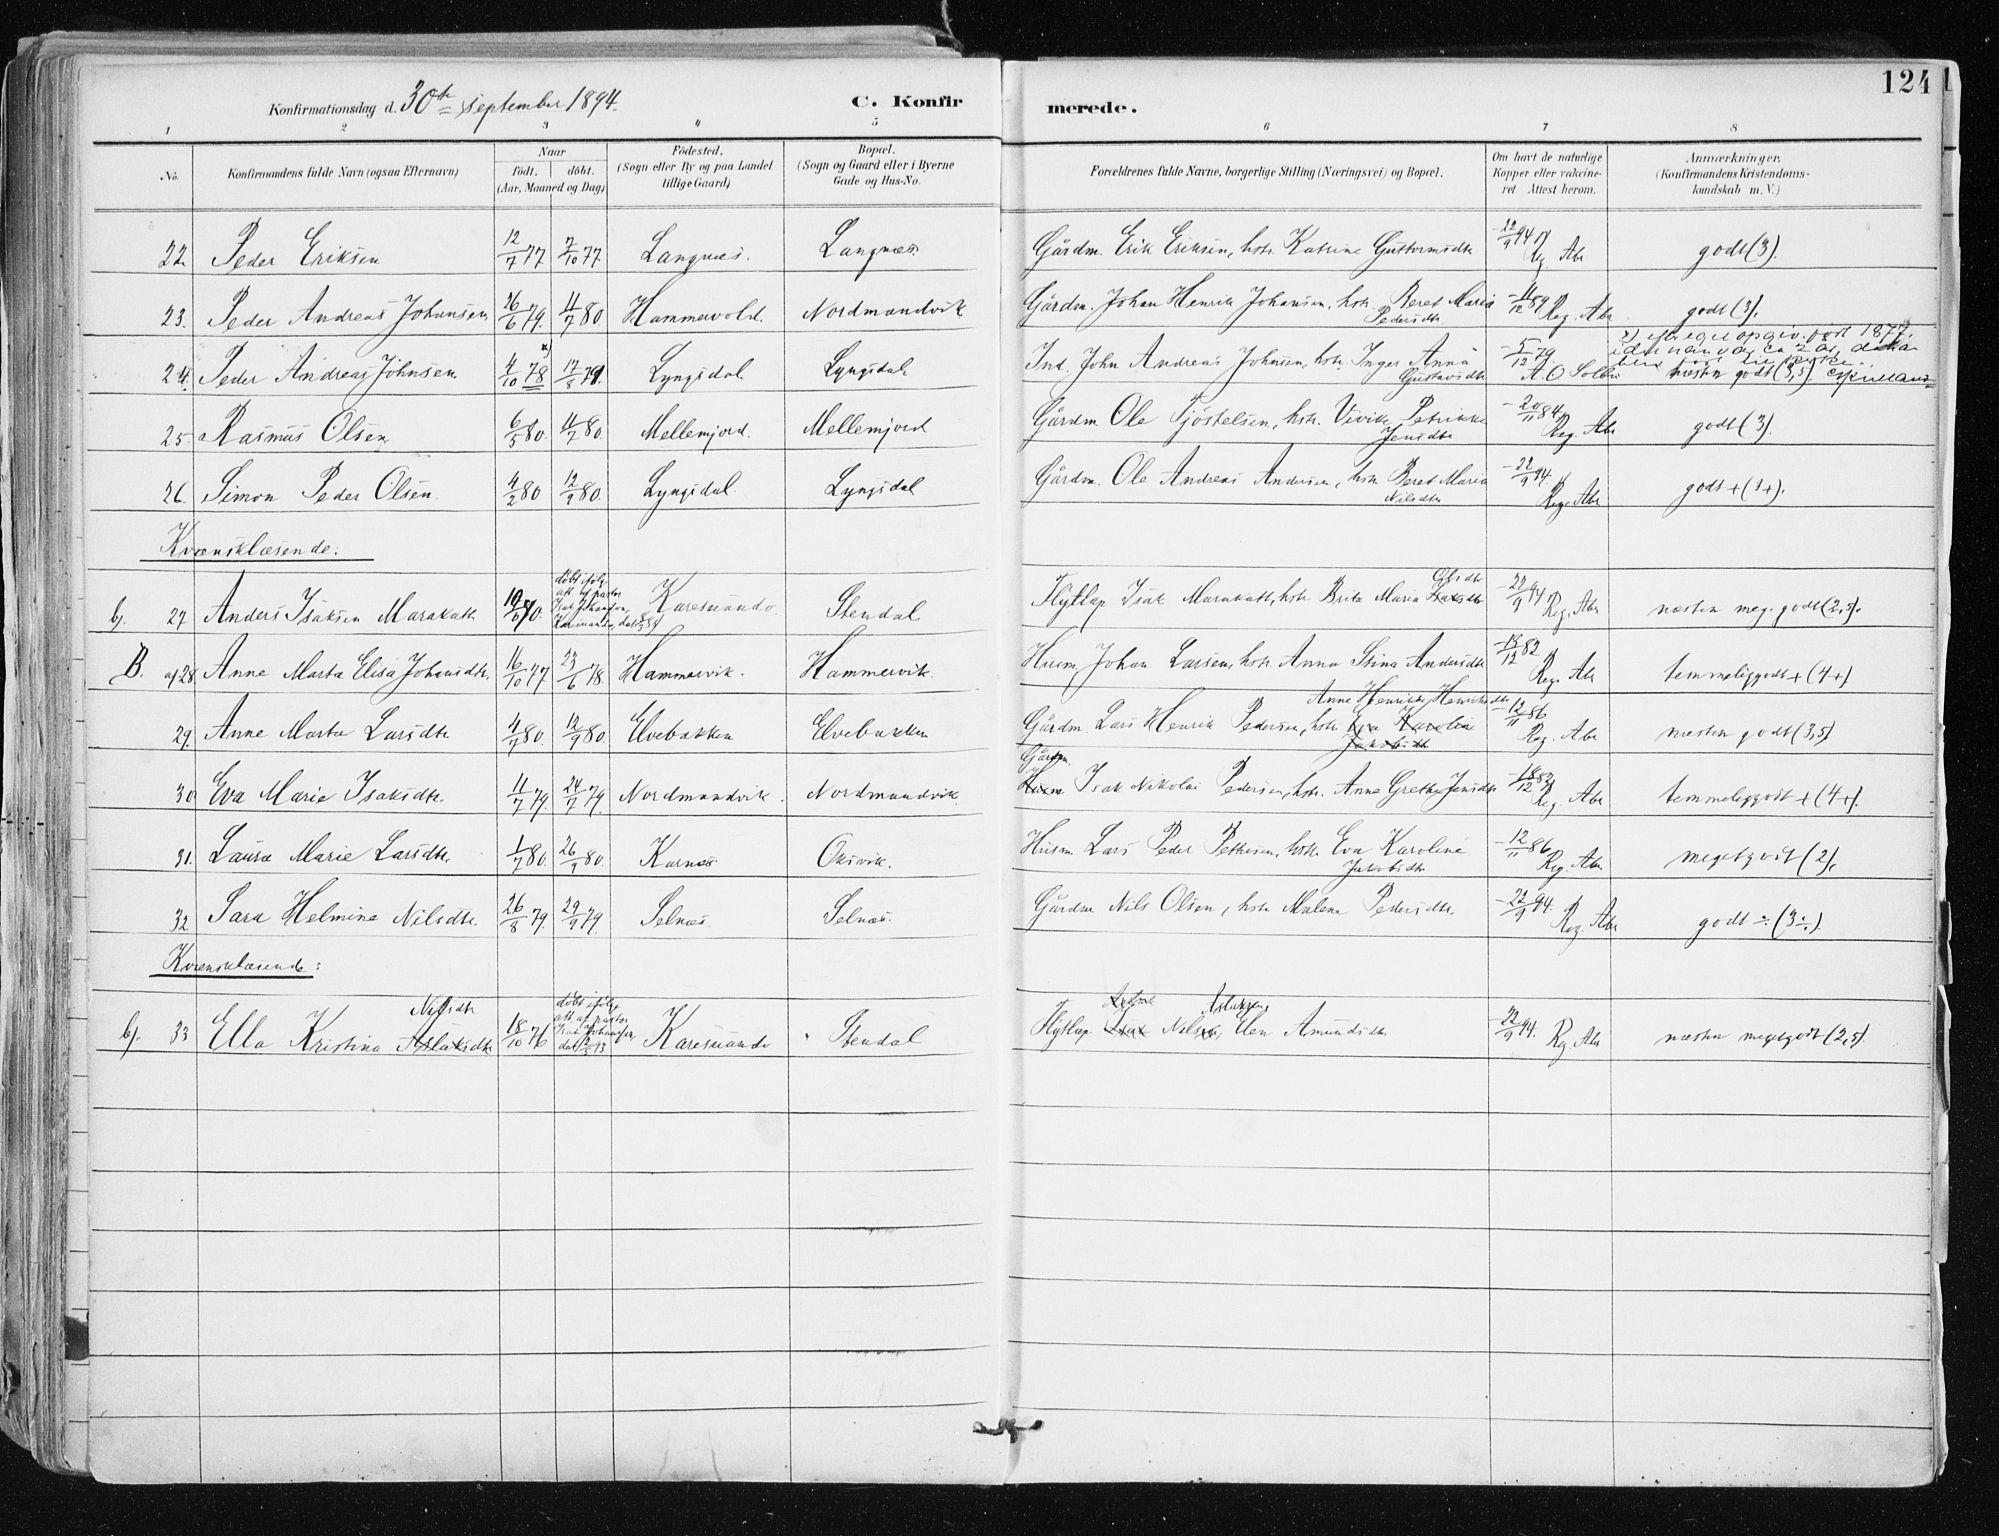 124
Konfirmationsdag d. 30te september 1894. C. Konfirmerede.
1 2 3 4 5 6 7 8
No. Konfirmandens fulde Navn (ogsaa Efternavn) Naar født. døbt. (Aar, Maaned og Dag) Fødested. (Sogn eller By og paa Landet tillige Gaard) Bopæl. (Sogn og Gaard eller i Byerne Gade og Hus-No. Forældrenes fulde Navne, borgerlige Stilling (Næringsvei) og Bopæl. Om havt de naturlige Kopper eller vakcineret Attest herom. Anmærkninger. (Konfirmandens Kristendomskundskab m. V.)
22. Peder Eriksen 12/7 77 7/10 77 Langnæs. Langnæs. Gårdm. Erik Eriksen, hstr. Katrine Guttormsdtr 22/9 94 Reg. Abr godt (3).
23. Peder Andreas Johansen 26/6 79. 4/7 80. Hammervold. Nordmandvik Gårdm. Johan Henrik Johansen, hstr. Beret Maria Pedersdtr. 4/12 89 Reg. Abr. godt (3).
24. Peder Andreas Johnsen 4/10 78 x) 17/8 79. Lyngsdal Lyngsdal Ind. John Andreas Johnsen, hstr. Inger Anna Gustavsdtr 5/12 79 A. O. x) født 1877, næsten godt (3,5)
25. Rasmus Olsen 6/5 80. 4/7 80. Mellemjord. Mellemjord Gårdm Ole Tjöstelsen, hstr. Vivike Petrikke Jensdtr 20/11 84 Reg. Abr godt (3).
26. Simon Peder Olsen. 4/2 80 12/9 80. Lyngsdal. Lyngsdal Gårdm. Ole Andreas Andersen, hstr Beret Maria Nilsdtr 22/9 94. Reg. Abr godt + (3+).
Kvænsklæsende:
b). 27. Anders Isaksen Marakatt 19/10 80. döbt ifölg. att af pastor Isak Johansson, Karesuando, dat Karesuando Stendal Flytlap Isak Marakatt, hstr Brita Maria Olsdtr 22/9 94 Reg. Abr næsten meg. godt (2,5).
B. a) 28. Anne Marta Elisa Johansdtr. 16/10 77 23/6 78. Hammervik. Hammervik. Husm. Johan Larsen, hstr Anna Stina Andersdtr 18/12 82 Reg. Abr temmeliggodt + (4+)
29. Anne Marta Larsdtr 4/7 80. 12/9 80. Elvebakken Elvebakken Gårdm. Lars Henrik Pedersen, hstr Anne Henrikke Henriksdtr Eva Karoline Jakobsdtr 12/11 86 Reg. Abr næsten godt (3,5)
30. Eva Marie Isaksdtr. 11/7 79. 24/7 79. Nordmandvik. Nordmandvik. Gårdm. Husm Isak Nikolai Pedersen, hstr. Anne Grethe Jensdtr 18/12 82 Reg. Abr temmeliggodt + (4+).
31. Laura Marie Larsdtr. 1/7 80. 26/9 80. Karnæs Oksvik. Husm Lars Peder Pettersen, hstr. Eva Karoline Jakobsdtr 12/11 86 Reg. Abr megetgodt (2).
32. Sara Helmine Nilsdtr. 26/8 79. 29/9 79 Selnæs. Selnæs. Gårdm Nils Olsen, hstr Malene Pedersdtr. 22/9 94. Reg. Abr godt ÷ (3÷).
Kvænsklæsende:
b). 33 Ella Kristina Nilsdtr Aslaksdtr 18/10 76 döbt ifölg. att af pastor Isak Johansson, dat Karesuando Stendal Flytlap Nils Aslaksen, Elen Amundsdtr 22/9 94. Reg. Abr næsten megetgodt (2,5).